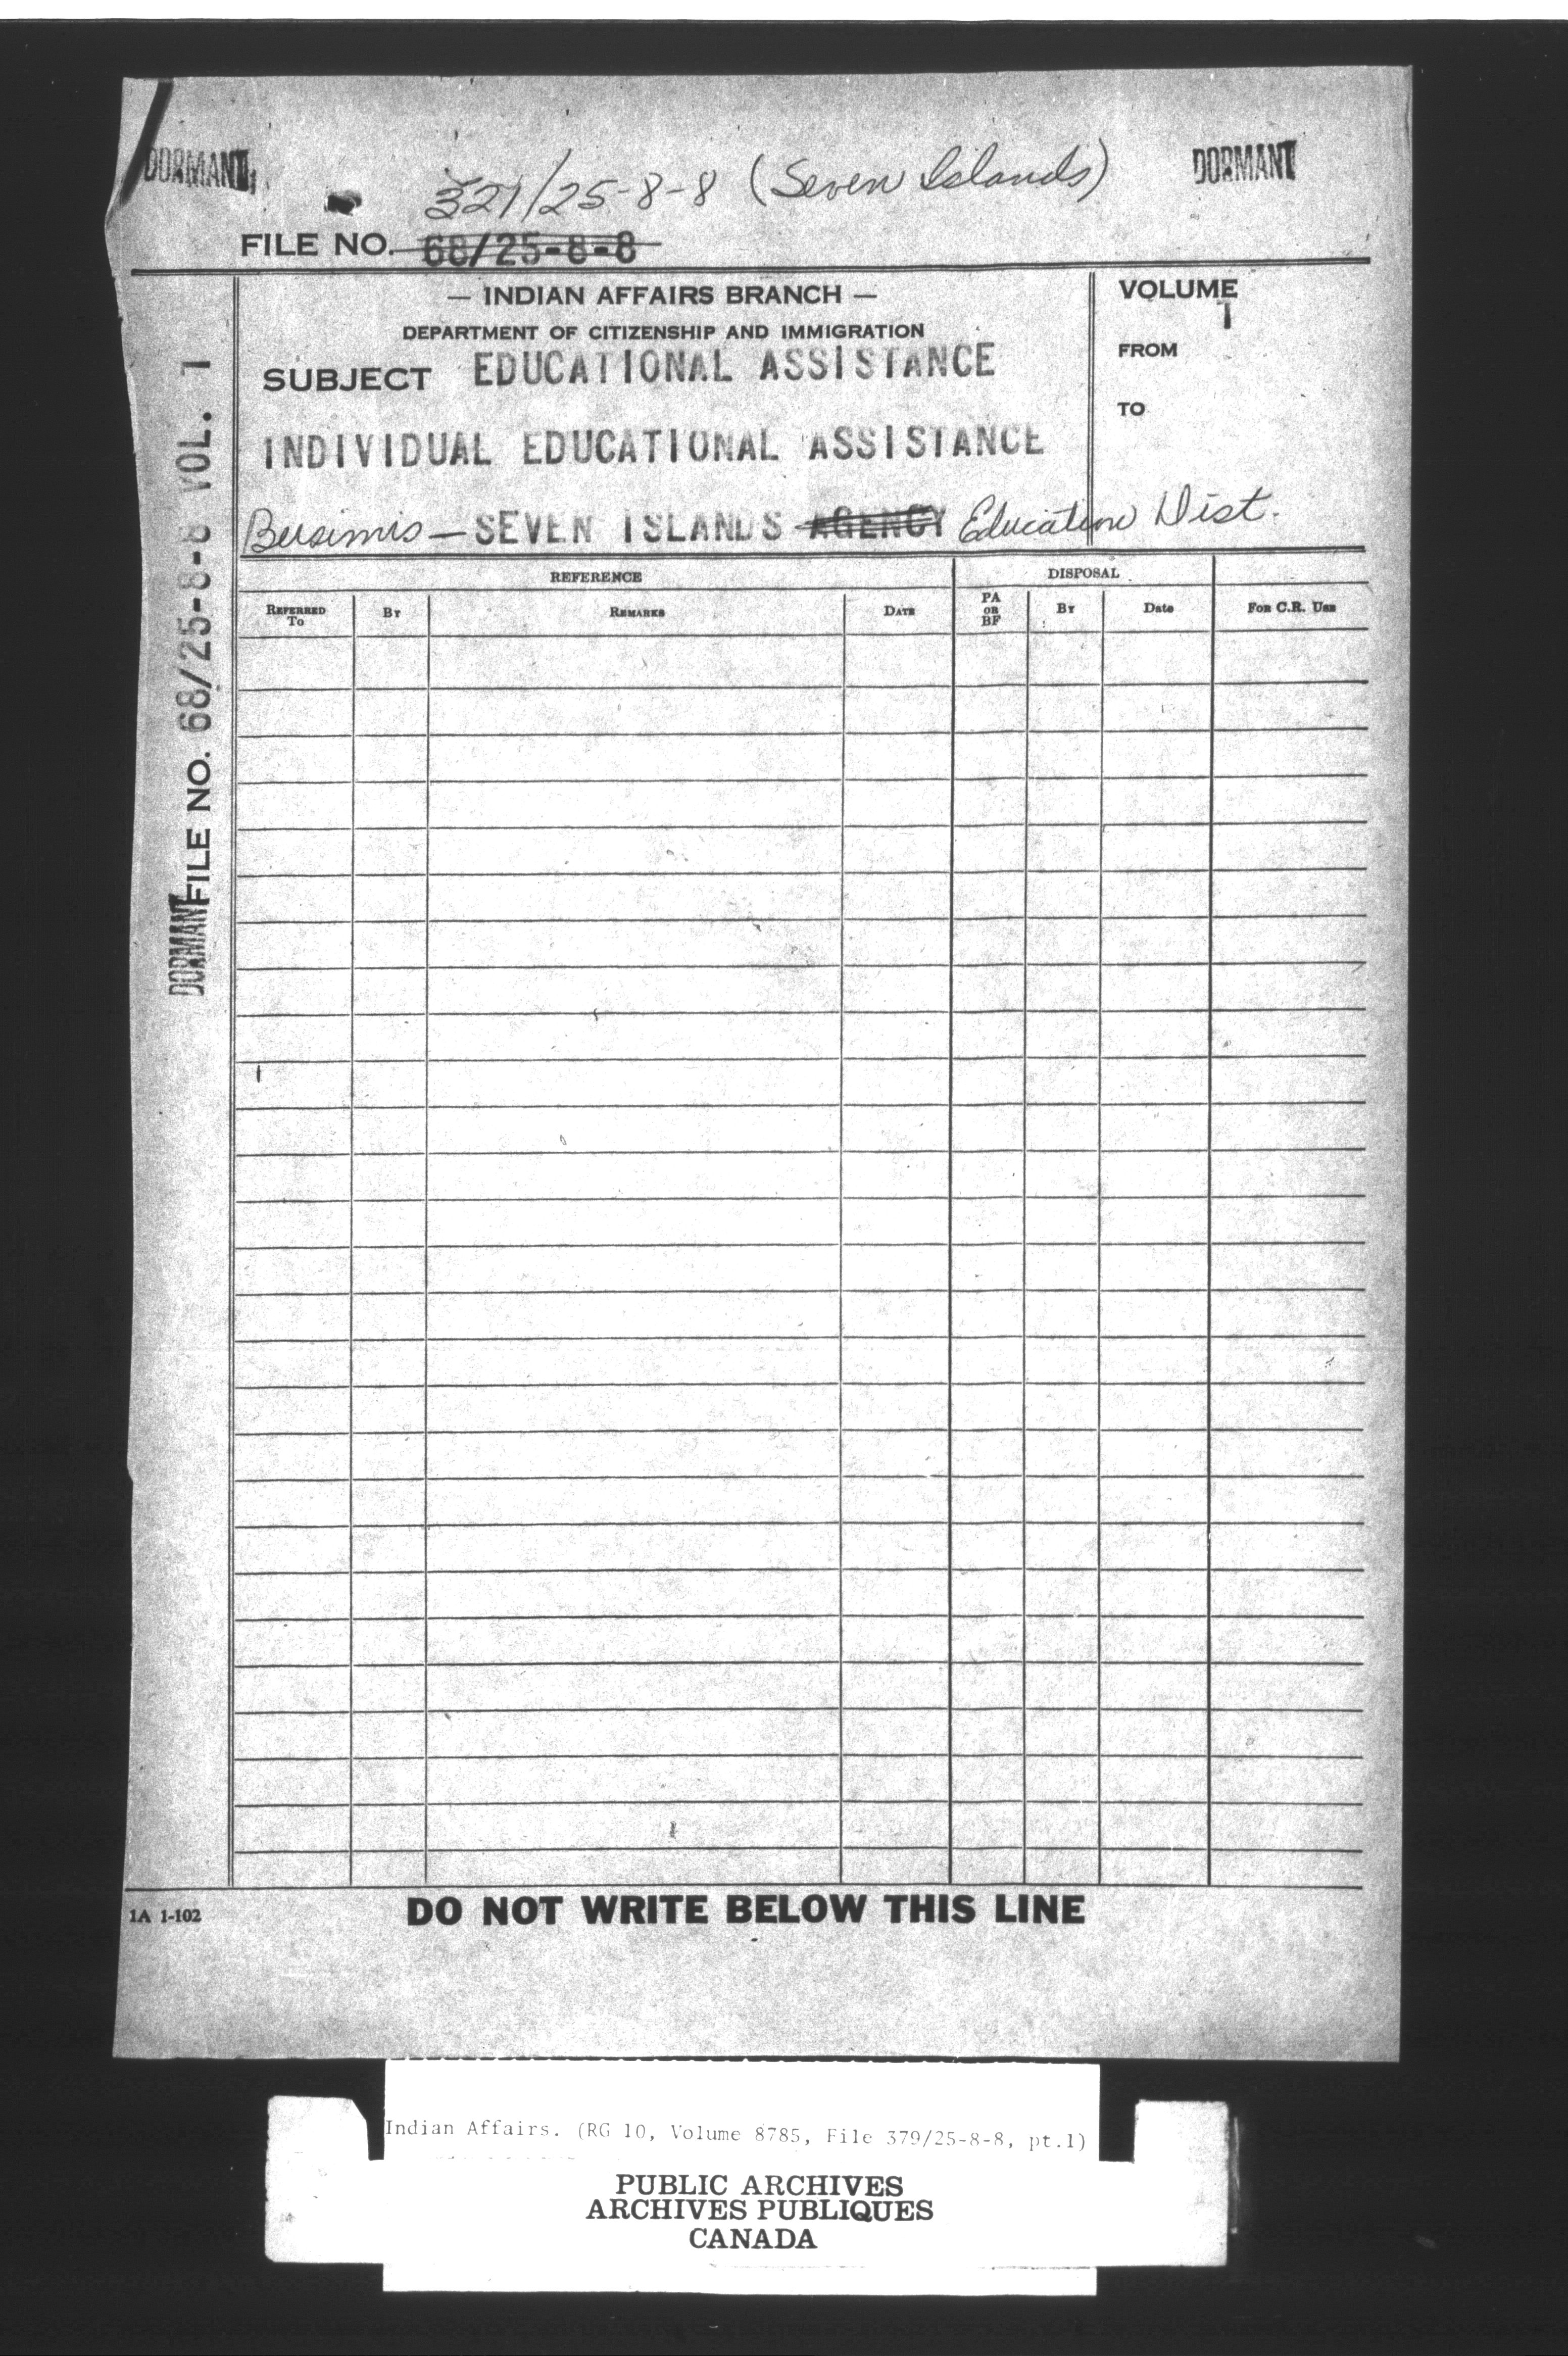 DORMANT
321/25-8-8 (Seven Islands)
DORMANT
FILE NO. 68/25-8-8
— INDIAN AFFAIRS BRANCH —
DEPARTMENT OF CITIZENSHIP AND IMMIGRATION
SUBJECT EDUCATIONAL ASSISTANCE
INDIVIDUAL EDUCATIONAL ASSISTANCE
Bersimis — SEVEN ISLANDS AGENCY Education Dist.
VOLUME
1
FROM
TO
DORMANT FILE NO. 68/25-8-8 VOL. 1
REFERENCE
DISPOSAL
REFERRED TO
BY
REMARKS
DATE
PA OR BF
BY
Date
FOR C.R. USE
1A 1-102
DO NOT WRITE BELOW THIS LINE
Indian Affairs. (RG 10, Volume 8785, File 379/25-8-8, pt.1)
PUBLIC ARCHIVES
ARCHIVES PUBLIQUES
CANADA